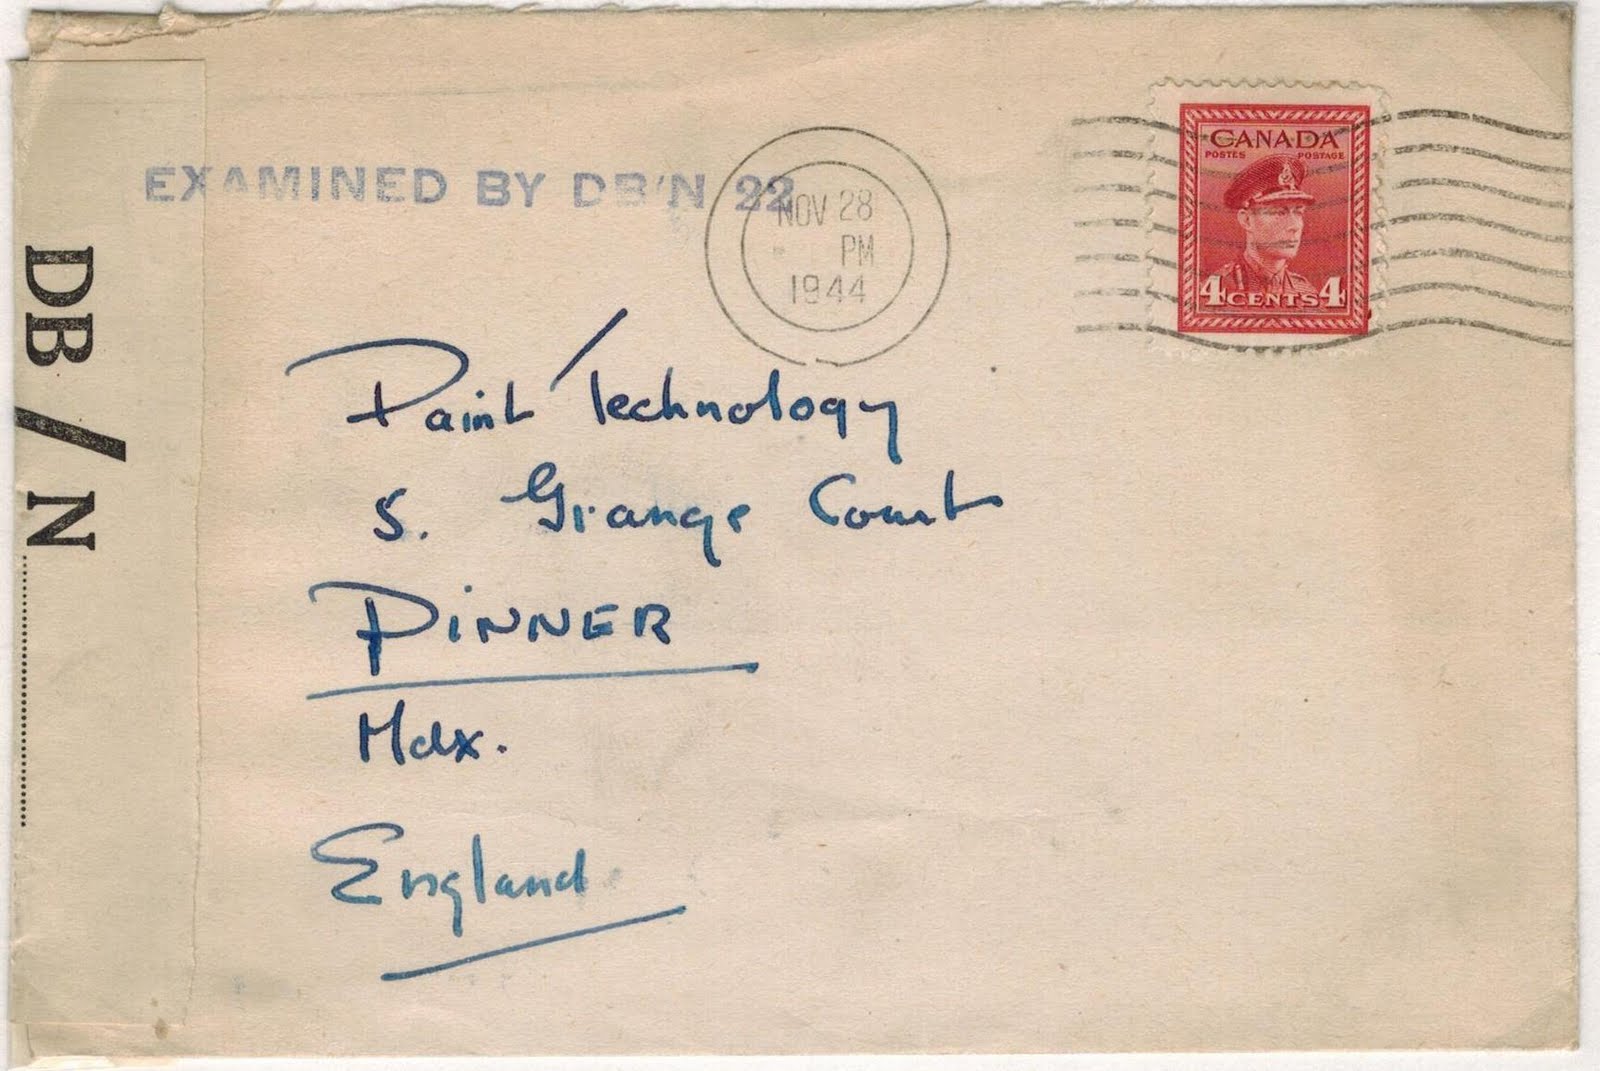 EXAMINED BY DB/N 22
NOV 28
PM
1944
CANADA
POSTES POSTAGE
4 CENTS 4
DB/N
Paint Technology
5. Grange Court
PINNER
Mdx.
England